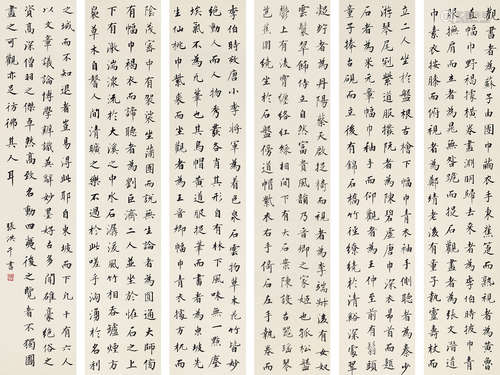 觀書者為蘇子由團巾繭衣手秉蕉箑而熟視者為黃魯
直幅巾野褐據橫卷畫淵明歸去來者為李伯時披巾青服
撫肩而立者為晁無咎跪而捉石觀畫者為張文潛道
巾素衣按膝而俯視者為鄭靖老後有童子執靈壽杖而
立二人坐於盤根古檜下幅巾青衣袖手側聽者為秦少
游琴尾冠紫道服摘阮者為陳碧虛唐巾深衣昂首而題
石者為米元章幅巾袖手而仰觀者為王仲至前有鬅頭頑
童捧古硯而立後有錦石橋竹徑繚繞於清溪深處翠
凝竚者為丹陽蔡天啟捉椅而視者為李端叔後有女奴
雲鬟翠飾侍立自然富貴風韻乃晉卿之家姬也孤松盤
鬱上有淩霄纏絡紅綠相間下有大石案陳設古器瑤琴
芭蕉圍繞坐於石盤傍道帽紫衣右手倚石左手執卷而
李伯時效唐小李將軍為著色泉石雲物草木花竹皆妙
絕動人而人物秀發各肖其形自有林下風味無一點塵
埃氣不為凡筆也其烏帽黃道服捉筆而書者為東坡先
生仙桃巾紫裘而坐觀者為王晉卿幅巾青衣據方机而
陰茂密中有袈裟坐蒲團而說無生論者為圓通大師傍
有幅巾褐衣而諦聽者為劉巨濟二人並坐於怪石之上
下有激湍潨流於大溪之中水石潺湲風竹相吞爐煙方
裊草木自馨人間清曠之樂不過於此嗟乎洶湧於名利
之域而不知退者豈易得此耶自東坡而下凡十有六人
以文章議論博學辨識英辭妙墨好古多聞雄豪絕俗之
資高深僧羽之傑卓然高致名動四夷後之覽者不獨圖
畫之可觀亦足彷彿其人耳
張洪千書